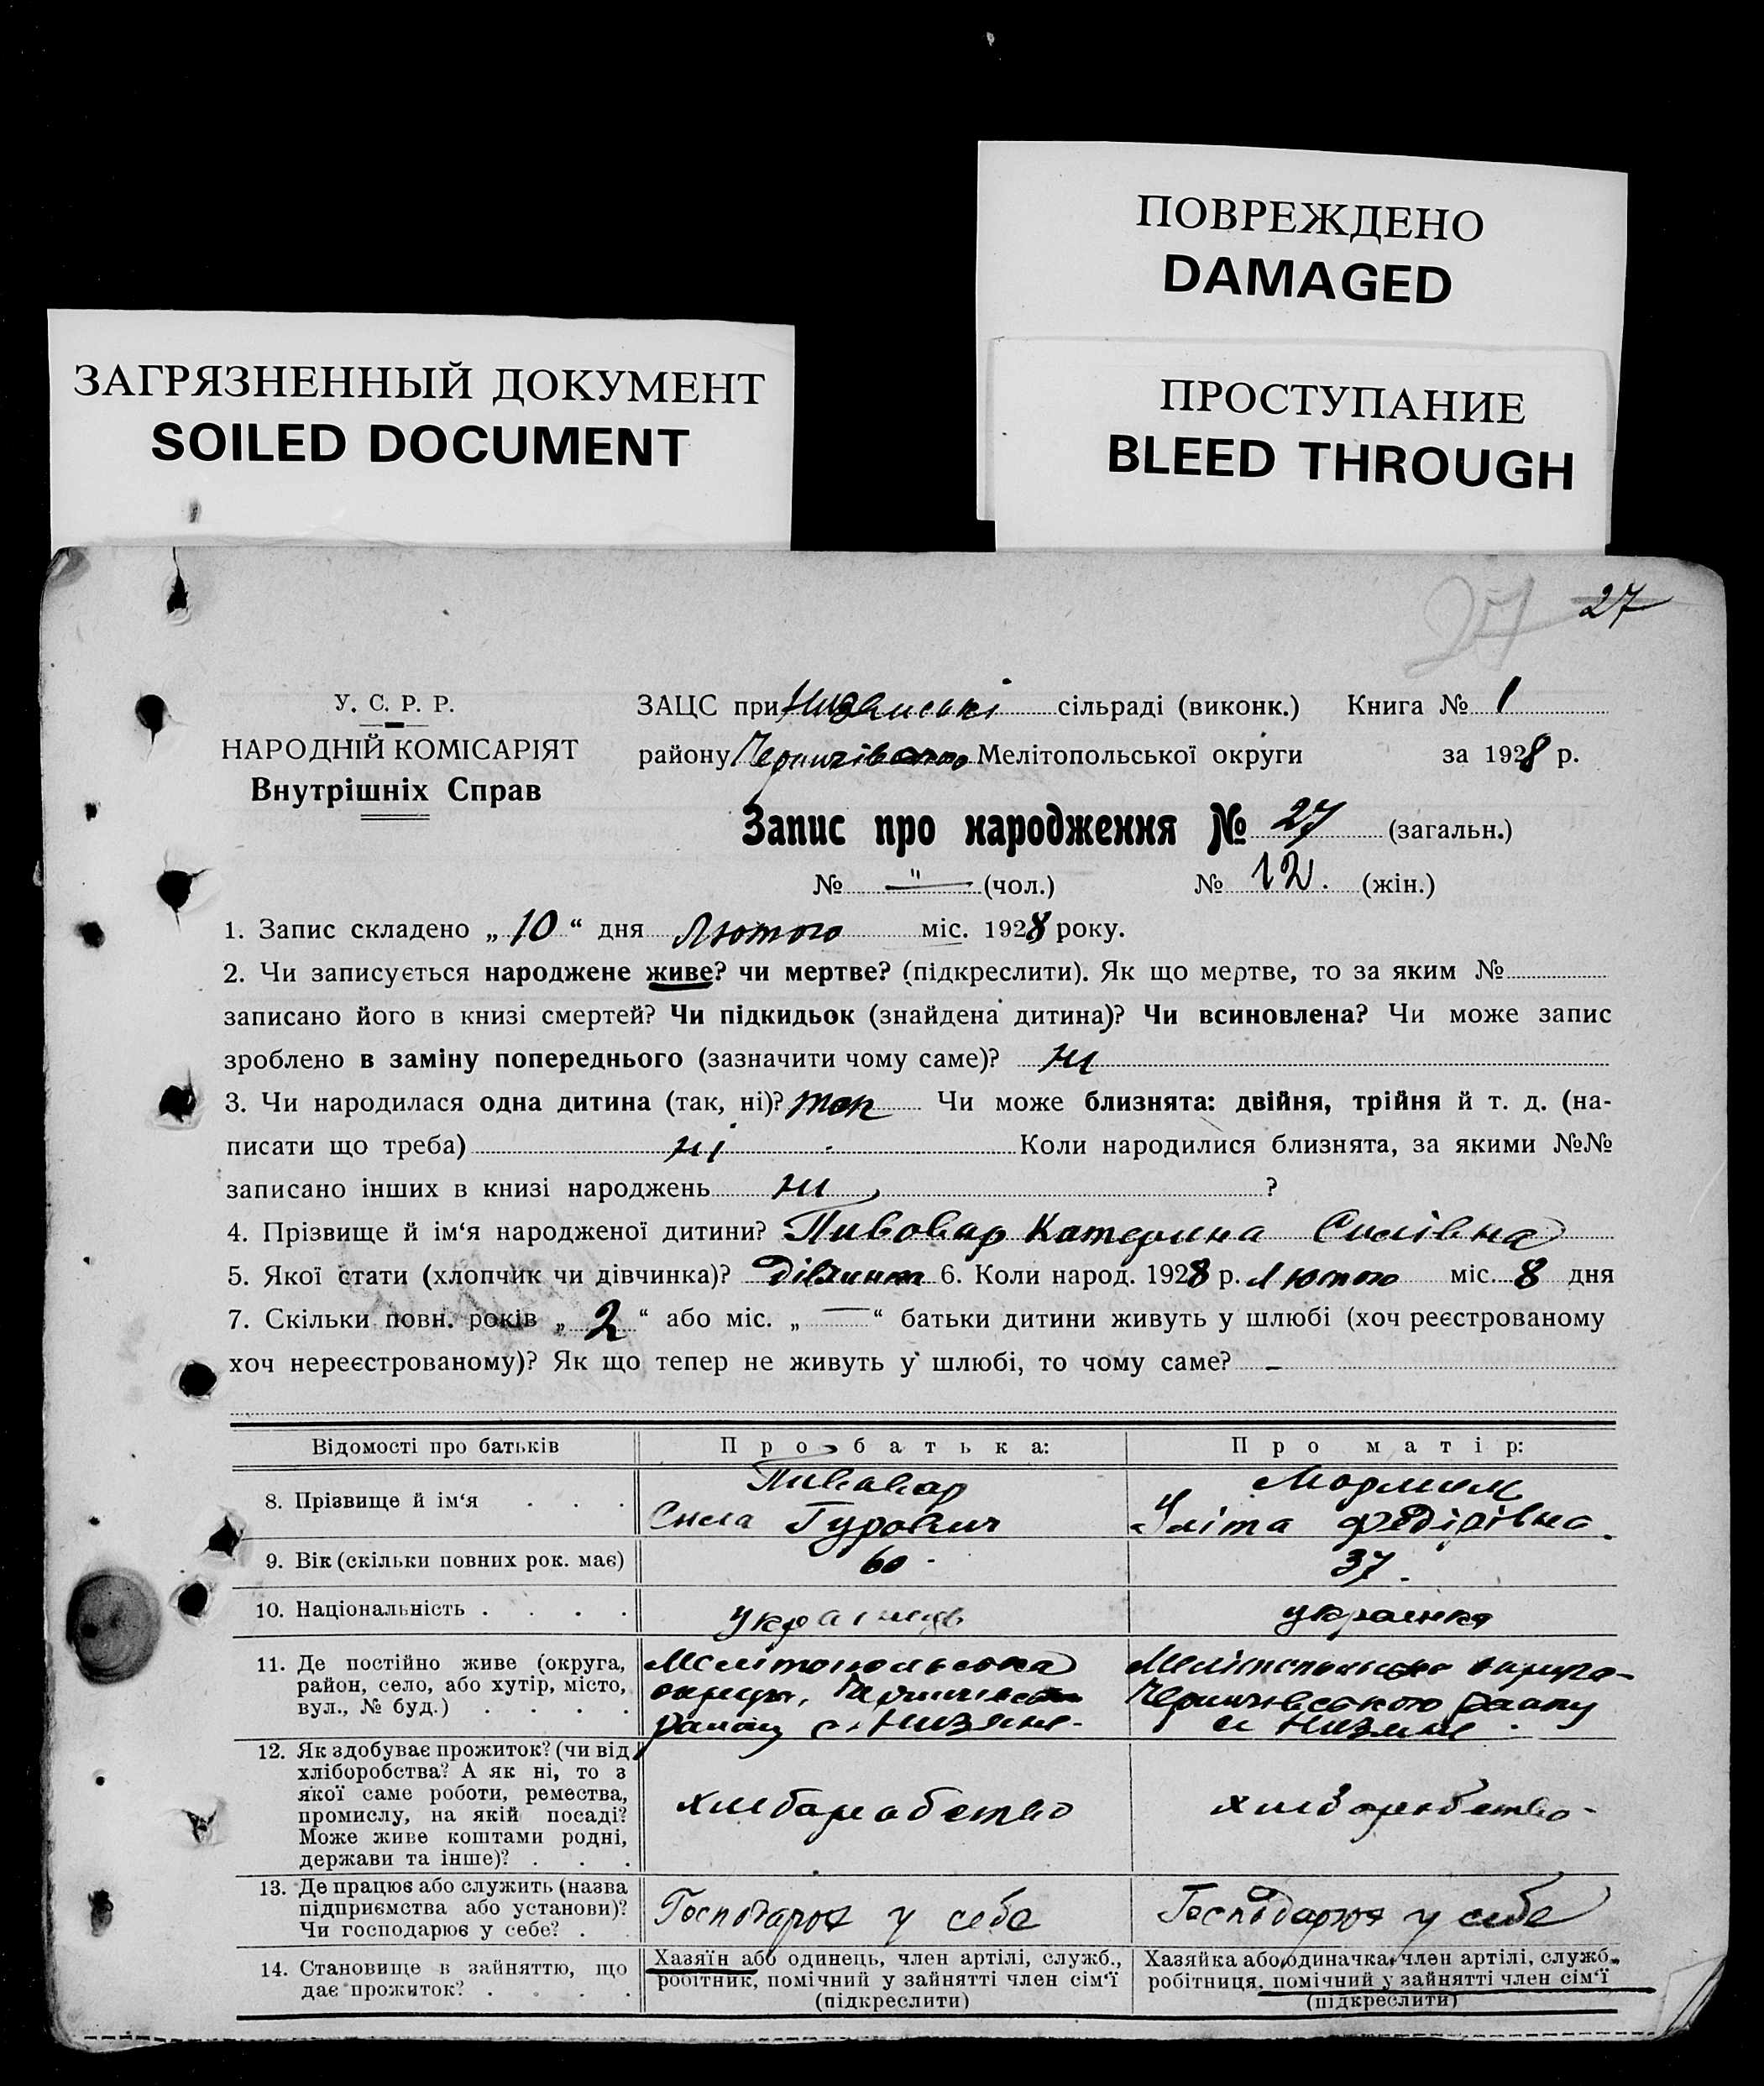 ПОВРЕЖДЕНО
DAMAGED
ЗАГРЯЗНЕННЫЙ ДОКУМЕНТ
SOILED DOCUMENT
ПРОСТУПАНИЕ
BLEED THROUGH
27 27
У. С. Р. Р.
НАРОДНІЙ КОМІСАРІЯТ
Внутрішніх Справ
ЗАЦС при сільраді (виконк.) Книга № 1
району Мелітопольської округи за 1928 р.
Запис про народження № 27 (загальн.)
№ (чол.) № 12. (жін.)
1. Запис складено „ 10 “ дня Лютого міс. 1928 року.
2. Чи записується народжене живе? чи мертве? (підкреслити). Як що мертве, то за яким №
записано його в книзі смертей? Чи підкидьок (знайдена дитина)? Чи всиновлена? Чи може запис
зроблено в заміну попереднього (зазначити чому саме)? ні
3. Чи народилася одна дитина (так, ні)? так Чи може близнята: двійня, трійня й т. д. (на-
писати що треба) ні Коли народилися близнята, за якими №№
записано інших в книзі народжень ні ?
4. Прізвище й ім‘я народженої дитини? Пивовар Катерина Силівна
5. Якої стати (хлопчик чи дівчинка)? Дівчинка 6. Коли народ. 1928 р. Лютого міс. 8 дня
7. Скільки повн. років „ 2 “ або міс. „ — “ батьки дитини живуть у шлюбі (хоч реєстрованому
хоч нереєстрованому)? Як що тепер не живуть у шлюбі, то чому саме? –
Відомості про батьків Про батька: Про матір:
8. Прізвище й ім‘я Пивовар Сила Гурович Уліта Федірівна
9. Вік (скільки повних рок. має) 60 37
10. Національність українець українка
11. Де постійно живе (округа,
район, село, або хутір, місто,
вул., № буд.)
Мелітопольська
округи,
району с. Низяне
Мелітопольська округа
Чернигівського району
с. Низяне
12. Як здобуває прожиток? (чи від
хліборобства? А як ні, то з
якої саме роботи, ремества,
промислу, на якій посаді?
Може живе коштами родні,
держави та інше)?
хлібаробство хліборобство
13. Де працює або служить (назва
підприємства або установи)?
Чи господарює у себе?
Господарює у себе Господарює у себе
14. Становище в зайняттю, що
дає прожиток?
Хазяїн або одинець, член артілі, служб.,
робітник, помічний у зайнятті член сім‘ї
(підкреслити)
Хазяйка або одиначка, член артілі, служб.,
робітниця, помічний у зайнятті член сім‘ї
(підкреслити)